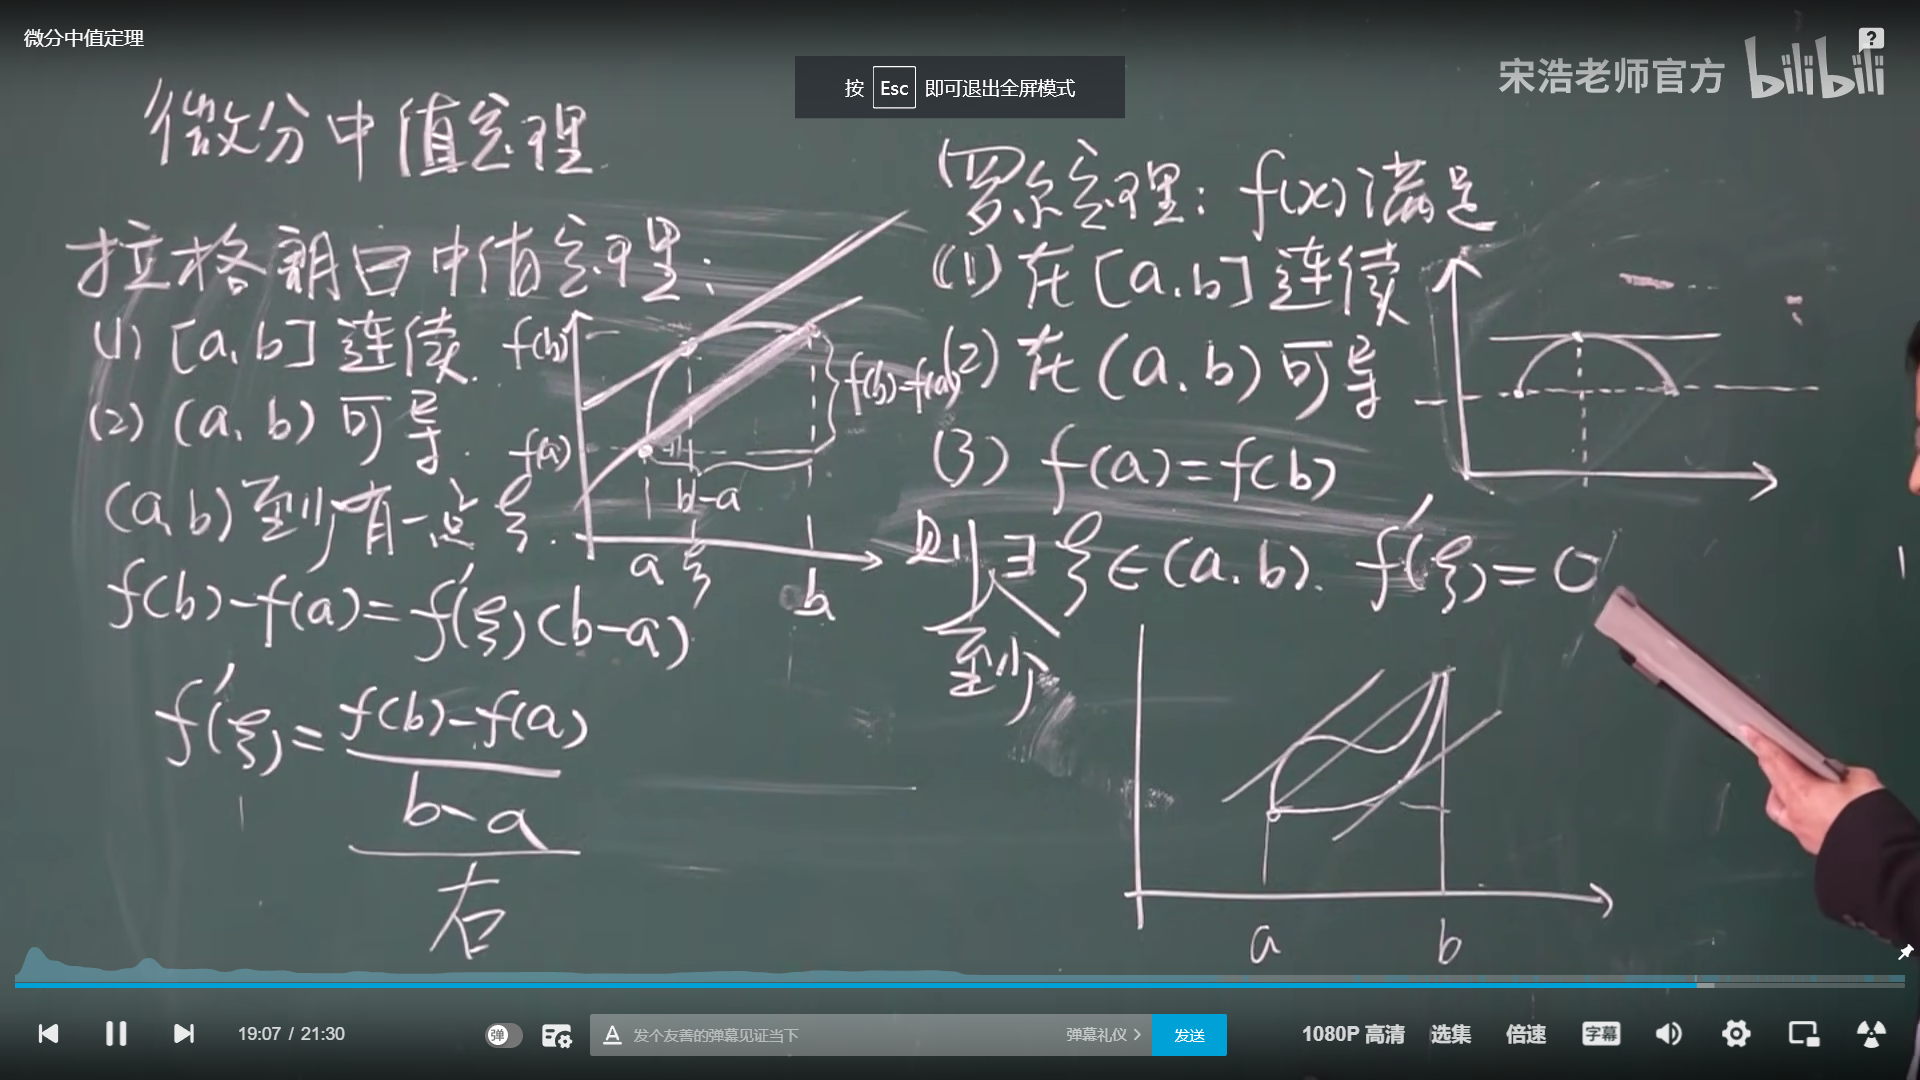 微分中值定理
按 Esc 即可退出全屏模式
宋浩老师官方 bilibili
?
微分中值定理
拉格朗日中值定理:
(1) [a,b] 连续.
(2) (a,b) 可导.
(a,b) 至少有一点 ξ.
f(b)-f(a)=f'(ξ)(b-a)
f'(ξ)=f(b)-f(a)
b-a
右
f(b)
f(a)
f(b)-f(a)
b-a
a ξ b
罗尔定理: f(x)满足
(1) 在[a,b]连续
(2) 在(a,b)可导
(3) f(a)=f(b)
则∃ξ∈(a,b). f'(ξ)=0
至少
a b
19:07 / 21:30
弹
A 发个友善的弹幕见证当下
弹幕礼仪 >
发送
1080P 高清
选集
倍速
字幕